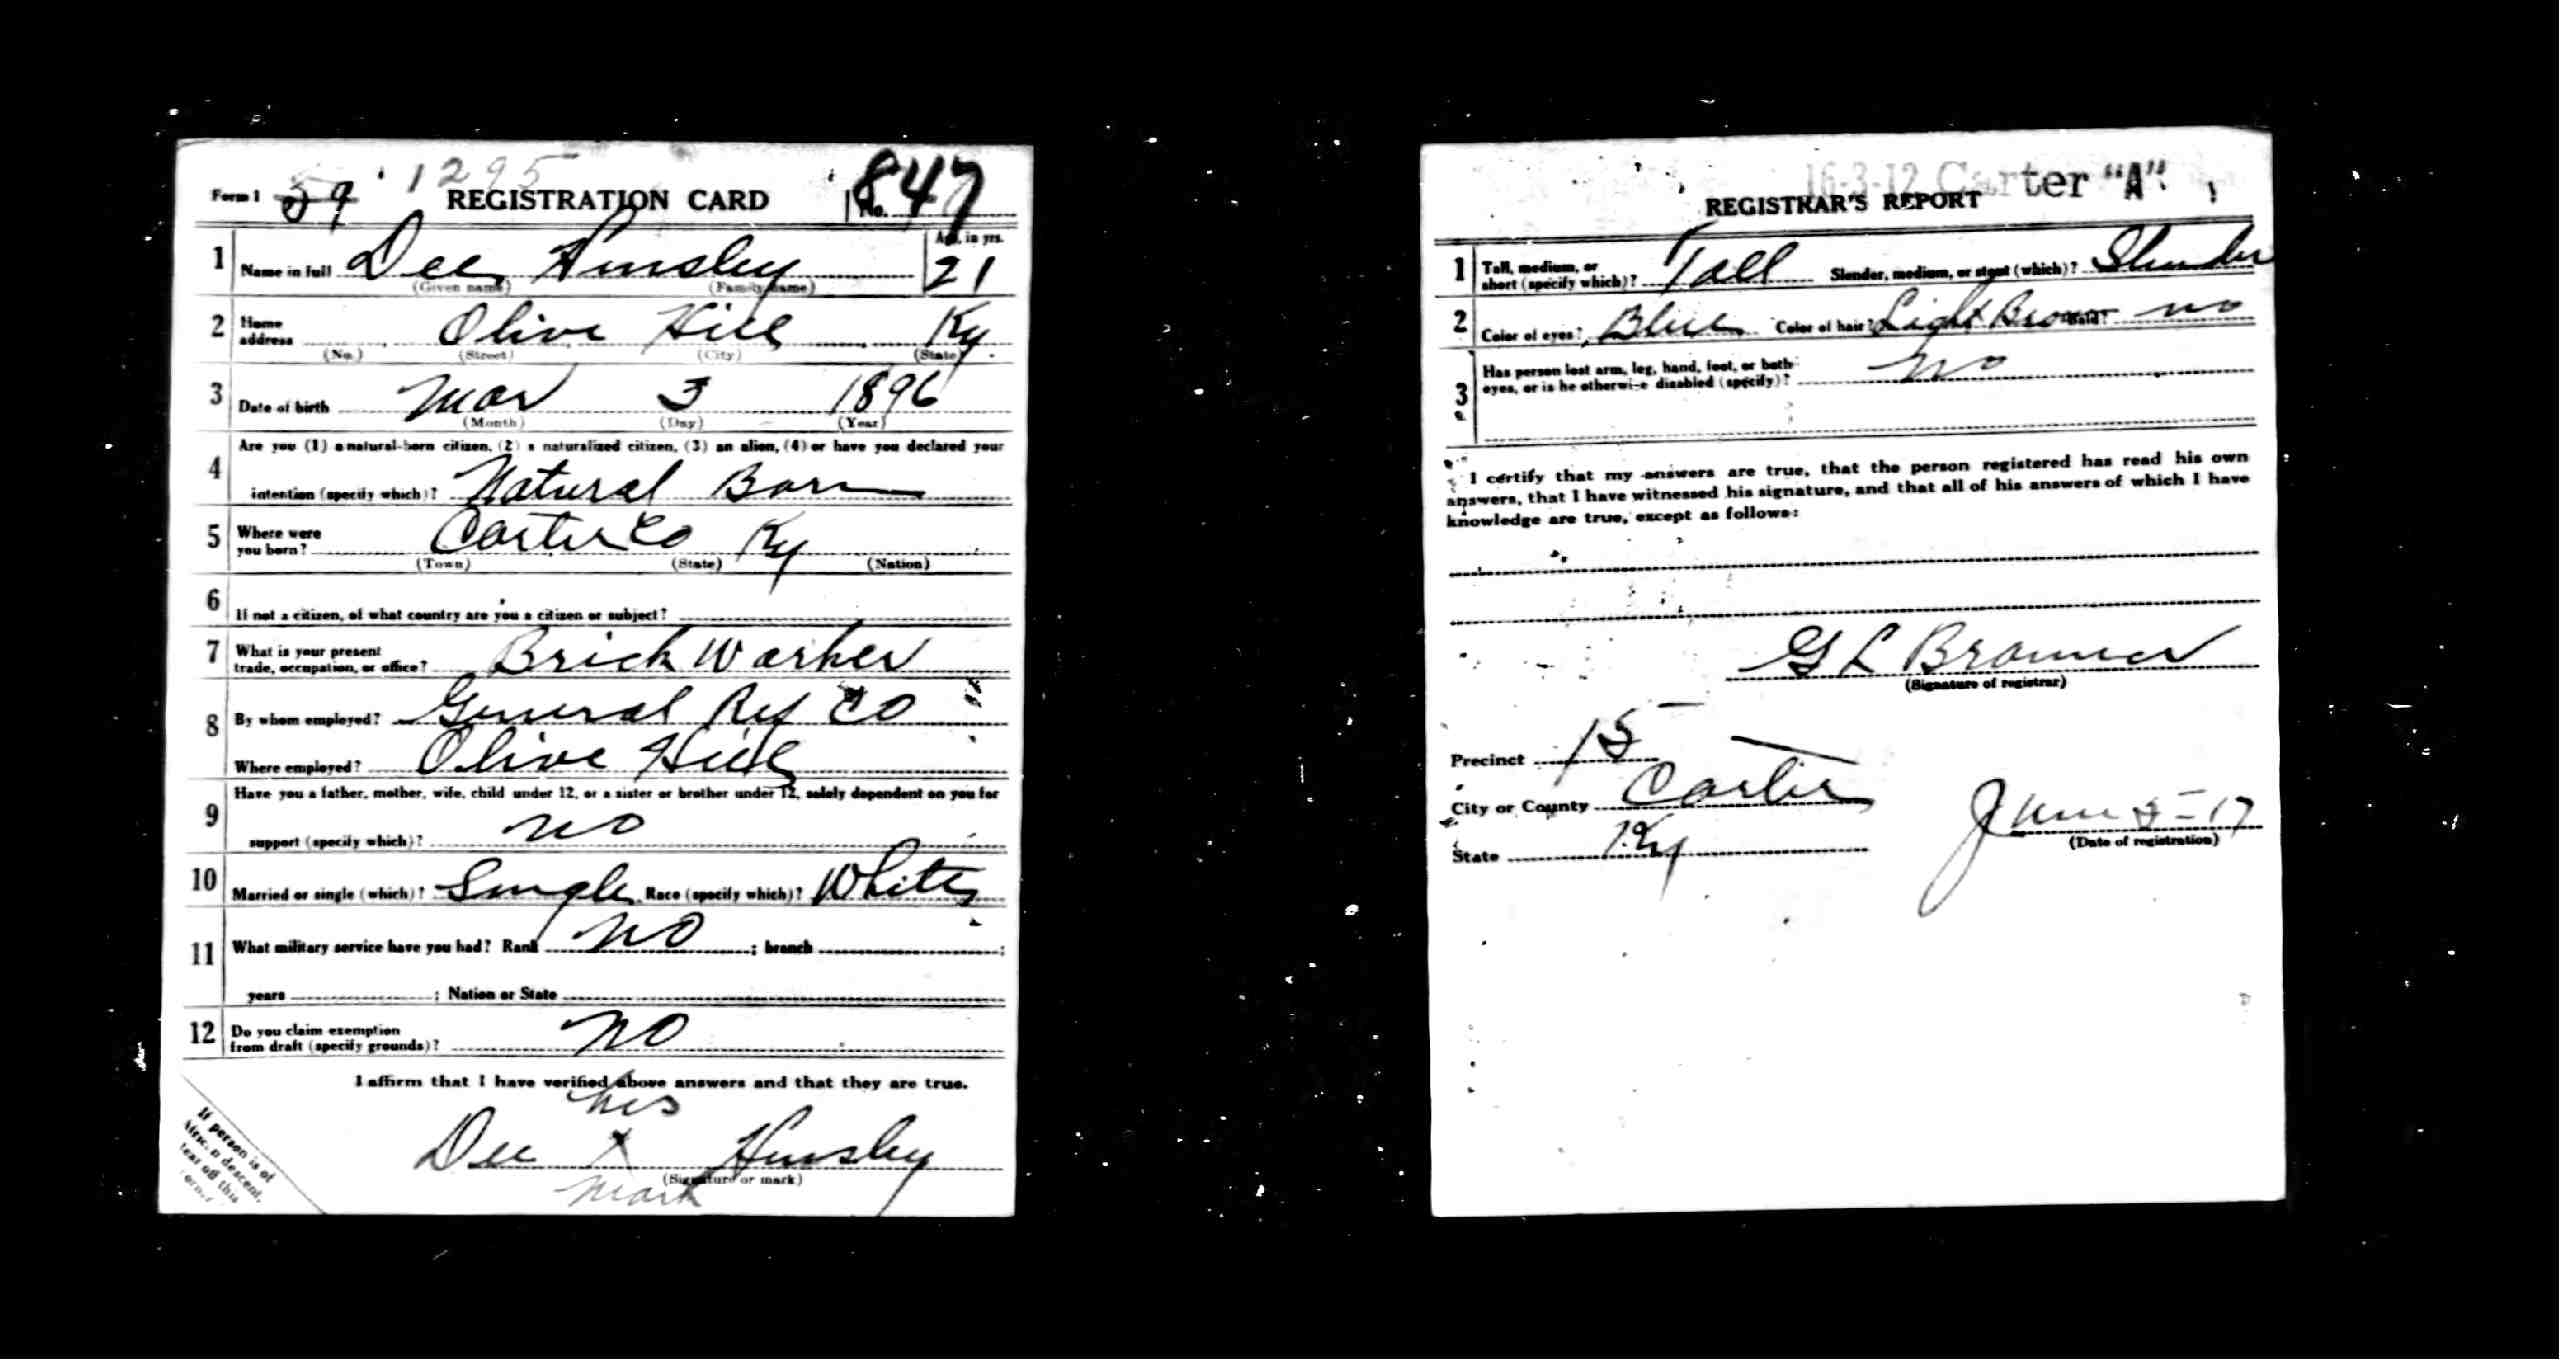 Form 1 59 1295 REGISTRATION CARD No. 847
1 Name in full Dee Hensley Age, in yrs. 21
(Given name) (Family name)
2 Home address Olive Hill Ky
(No.) (Street) (City) (State)
3 Date of birth Mar 3 1896
(Month) (Day) (Year)
4 Are you (1) a natural-born citizen, (2) a naturalized citizen, (3) an alien, (4) or have you declared your
intention (specify which)? Natural Born
5 Where were you born? Carter Co Ky
(Town) (State) (Nation)
6 If not a citizen, of what country are you a citizen or subject?
7 What is your present trade, occupation, or office? Brick Worker
8 By whom employed? General Ref Co
Where employed? Olive Hill
9 Have you a father, mother, wife, child under 12, or a sister or brother under 12, solely dependent on you for
support (specify which)? no
10 Married or single (which)? Single Race (specify which)? White
11 What military service have you had? Rank no ; branch ;
years ; Nation or State
12 Do you claim exemption from draft (specify grounds)? no
I affirm that I have verified above answers and that they are true.
his
Dee X Hensley
(Signature or mark)
mark
If person is of
descent,
tear off this
corner
16-3-12 Carter "A"
REGISTRAR'S REPORT
1 Tall, medium, or short (specify which)? Tall Slender, medium, or stout (which)? Slender
2 Color of eyes? Blue Color of hair? Light Brown Bald? no
3 Has person lost arm, leg, hand, foot, or both
eyes, or is he otherwise disabled (specify)? no
I certify that my answers are true, that the person registered has read his own
answers, that I have witnessed his signature, and that all of his answers of which I have
knowledge are true, except as follows:
G L
(Signature of registrar)
Precinct 15
City or County Carter
State Ky June 5-17
(Date of registration)